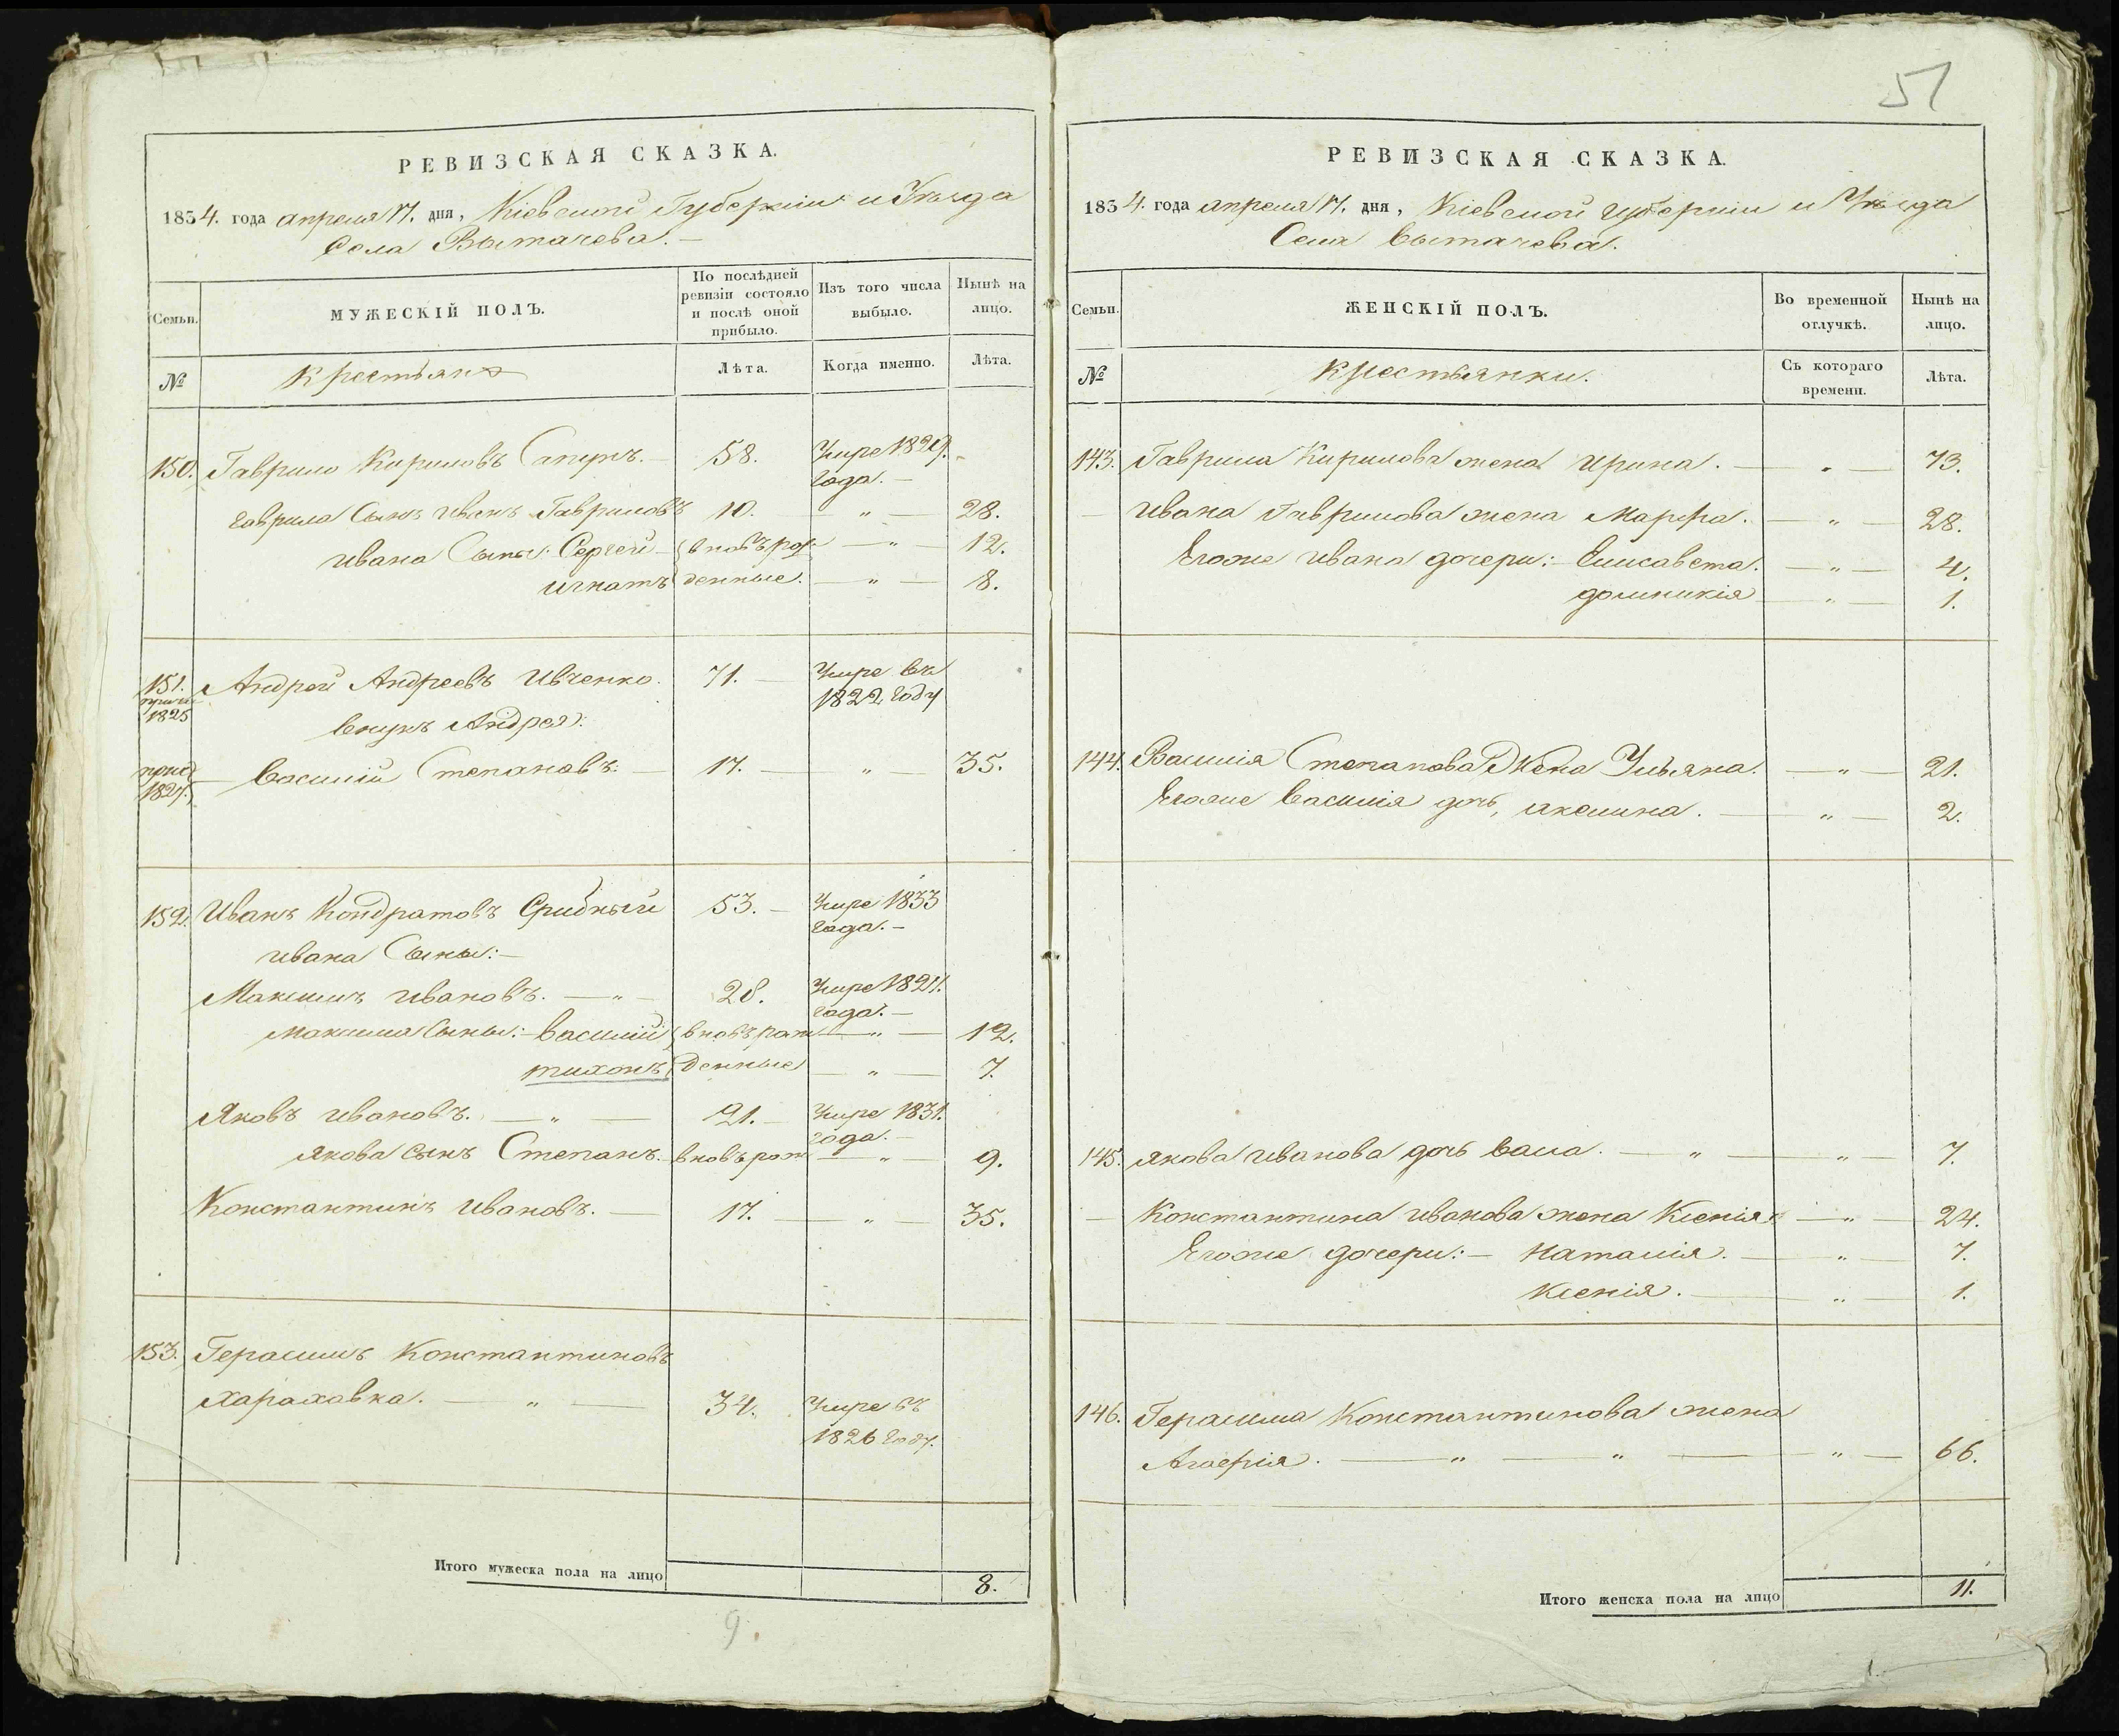 51
РЕВИЗСКАЯ СКАЗКА.
1834. года апреля 17. дня, Кіевской Губерніи и Уѣзда
Села Вытачева.
Семьи.
МУЖЕСКІЙ ПОЛЪ.
По послѣдней ревизіи состояло и послѣ оной прибыло.
Изъ того числа выбыло.
Нынѣ на лицо.
№
Крестьяне
Лѣта.
Когда именно.
Лѣта.
150. Гаврило Кириловъ Сапунъ. 58. Умре 1829. года.
Гаврила Сынъ Иванъ Гавриловъ 10. " 28.
Ивана Сыны: Сергей вновь рож " 12.
Игнатъ денные. " 8.
151. Андрей Андреевъ Ивченко. 71. Умре въ 1822 году
1825
внукъ Андрея:
1827. Василій Степановъ. 17. " 35.
152. Иванъ Кондратовъ Срибный 53. Умре 1833 года.
Ивана Сыны:
Максимъ Ивановъ. " 28. Умре 1827. года.
Максима Сыны: Василий вновь рож " 12.
тихонъ денные " 7.
Яковъ Ивановъ. " 21. Умре 1831. года.
Якова сынъ Степанъ. вновь рож " 9.
Константинъ Ивановъ. 17. " 35.
153. Герасимъ Константиновъ
Хараховка. " 34. Умре въ 1826 году.
Итого мужеска пола на лицо 8.
9.
РЕВИЗСКАЯ СКАЗКА.
1834. года апреля 17. дня, Кіевской губерніи и Уѣзда
Села Вытачева.
Семьи.
ЖЕНСКІЙ ПОЛЪ.
Во временной отлучкѣ.
Нынѣ на лицо.
№
Крестьянки.
Съ котораго времени.
Лѣта.
143. Гаврила Кирилова жена Ирина. " 73.
Ивана Гаврилова жена Марфа. " 28.
Егоже Ивана дочери: Елисавета. " 4.
домникія " 1.
144. Василія Степанова Жена Ульяна. " 21.
Егоже Василія дочь, акелина. " 2.
145. Якова Иванова дочь Васа. " " 7.
Константина Иванова жена Ксенія " 24.
Егоже дочери: Наталія. " 7.
Ксенія. " 1.
146. Герасима Константинова жена
" " " 66.
Итого женска пола на лицо 11.